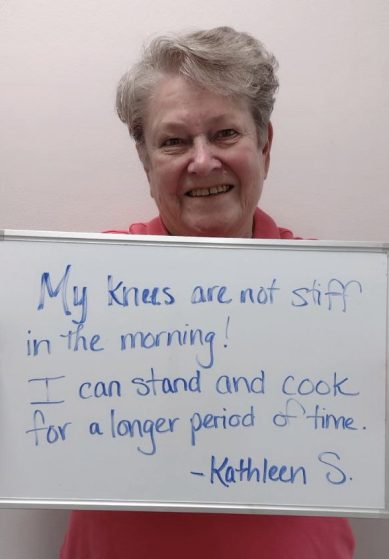 My knees are not stiff
in the morning!
I can stand and cook
for a longer period of time.
-Kathleen S.